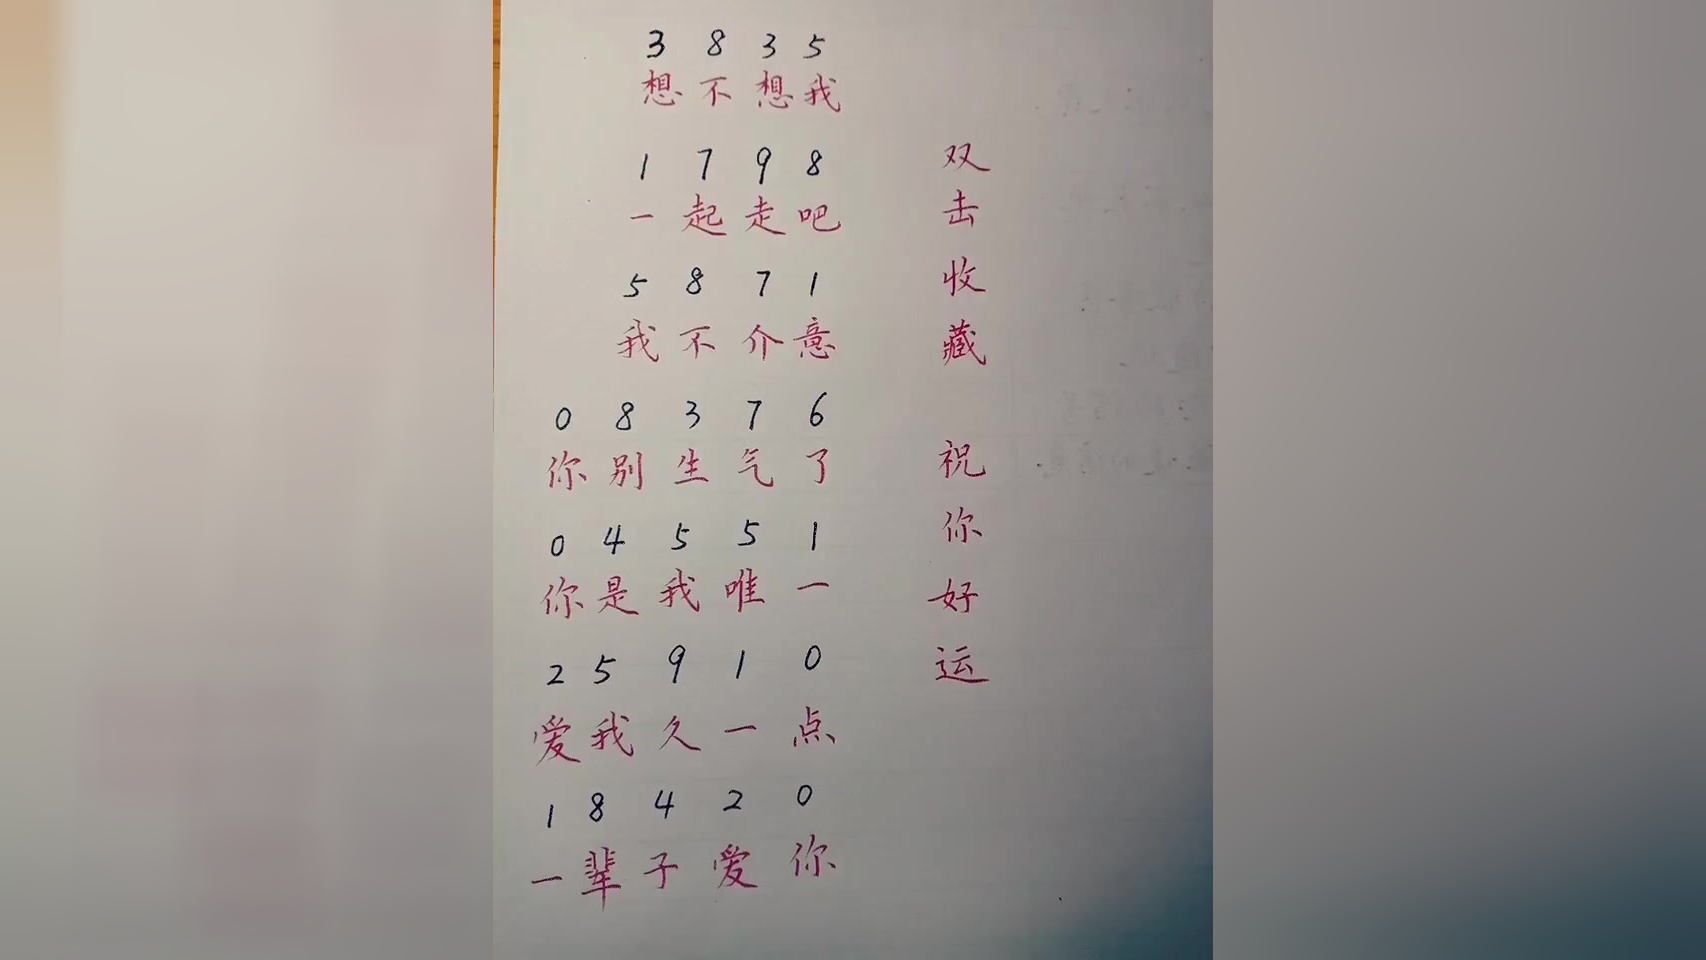 3 8 3 5
想不想我
1 7 9 8
一起走吧
5 8 7 1
我不介意
0 8 3 7 6
你别生气了
0 4 5 5 1
你是我唯一
2 5 9 1 0
爱我久一点
1 8 4 2 0
一辈子爱你
双击收藏
祝你好运